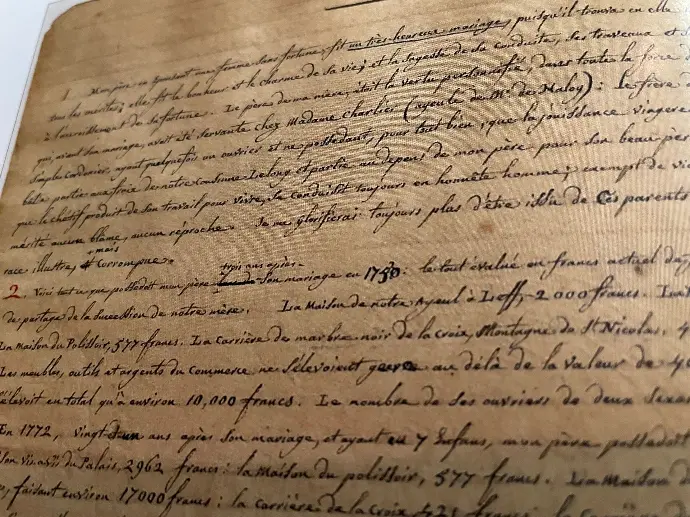 1 Mon père en épousant une femme sans fortune, fit un très-heureux mariage, puisqu'il trouva en elle
tous les mérites; elle fit le bonheur et le charme de sa vie; et la sagesse de sa conduite, ses travaux et
à l'accroissement de sa fortune. Le père de ma mère, était la vertu personnifiée, dans toute la force
qui, avant son mariage, avait été servante chez Madame Charlier (ayeule de Mr. de Maloy): le frère
simple ayant quelquefois un ouvrier et ne possedant, pour tout bien, que la jouissance viagere
de notre Cousinne Leloup et partie au depens de mon père pour son beau père
que le chetif produit de son travail pour vivre, se conduisit toujours en honnête homme; exempt de
mérité aucun blâme, aucun réproche. Je me glorifierai toujours plus d'être issu de ces parents
race illustre, mais corrompue.
2. Voici tout ce que possedoit mon père trois ans après son mariage en 1750: le tout évalué en francs actuel
de partage de la succession de notre mère. La Maison de notre Ayeul à Loff, 2000 francs.
La Maison du Polissoir, 577 francs. La Carrière de marbre noir de la Croix, Montagne de St Nicolas,
Les meubles, outils et argents du Commerce, ne s'élevoient guere au délà de la valeur de
s'élevoit en total qu'à environ 10,000 francs. Le nombre de ses ouvriers de deux sexes
En 1772, vingt un ans après son mariage, et ayant eu 7 Enfans, mon père possedoit
son vis-à-vis du Palais, 2962 francs: la Maison du polissoir, 577 francs. La Maison
faisant environ 17000 francs: la Carrière de la Croix